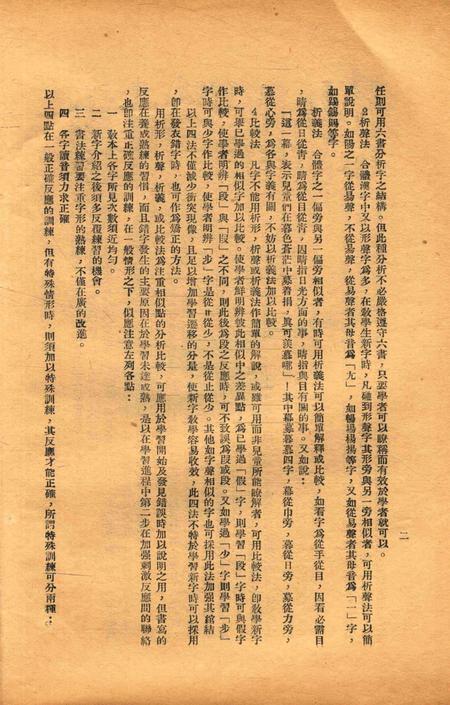 二
任則可用六書分析字之結構。但此種分析不必嚴格遵守六書，只要學者可以瞭稱而有效於學者就可以。
2析聲法　合體漢字中又以形聲字爲多，在敎學生新字時，凡碰到形聲字其形旁與另一旁相似者，可用析聲法可以簡
單說明。如陽之一字從易聲，不從易聲，從易聲者其母音爲「尢」，如暢場楊揚等字，又如從易聲者其母音爲「一」字，
如踢錫賜等字。
析義法　合體字之一偏旁與另一偏旁相似者，有時可用析義法可以簡單解釋或比較，如看字爲從手從目，因看必需目
，晴爲從日從青，睛爲從目從青，因晴指日光方面的事，睛指與目有關的事。又如說：
「這一幕，表示兒童們在暮色蒼茫中募着捐，眞可羨慕哪」！其中幕募暮慕四字，幕從巾旁，暮從日旁，募從力旁，
慕從心旁，爲各與字義有關，不妨以析義法加以比較。
4比較法　凡字不能用析形，析聲或析義法作簡單的解說，或雖可用而非兒童所能瞭解者，可用比較法，卽敎學新字
時，可舉已學過的相似字加以比較。使學者鮮明辨彼此相似中之差異點，爲已學過「假」字，則學習「段」字時可與假字
作比較，使學者可辨「段」與「叚」之不同，則此後爲段之反應時，可不致誤爲叚或段。又如學過「少」字則學習「步」
字時可與少字作比較，使學者明辨「步」字是從止從少，不是從止從少。其他如字聲相似的字也可採用此法加强其綰結
以上四法不僅減少衝突現像，且足以增加學習遷移的分量，使新字敎學容易收效，此四法不特於學習新字時可以採用
，卽在發表錯字時，也可作爲矯正的方法。
用析形，析聲，析義，或比較法爲注重相似點的分析比較，可應用於學習開始及發見錯誤時加以說明之用，但書寫的
反應在養成熟練的習慣，而且錯字發生的主要原因在於學習未達成熟，是以在學習進程中第二步在加强刺激反應間的聯絡
，也卽注重正確反應的訓練，在一般情形之下，似應注意左列各點：
一　敎本上各字所見次數須近均匀。
二　新字介紹之後須多反覆練習的機會。
三　書法練習要注重字形的熟練，不僅在質的改進。
四　各字讀音須力求正確
以上四點在一般正確反應的訓練，但有特殊情形時，則須加以特殊訓練，其反應才能正確，所謂特殊訓練可分兩種：